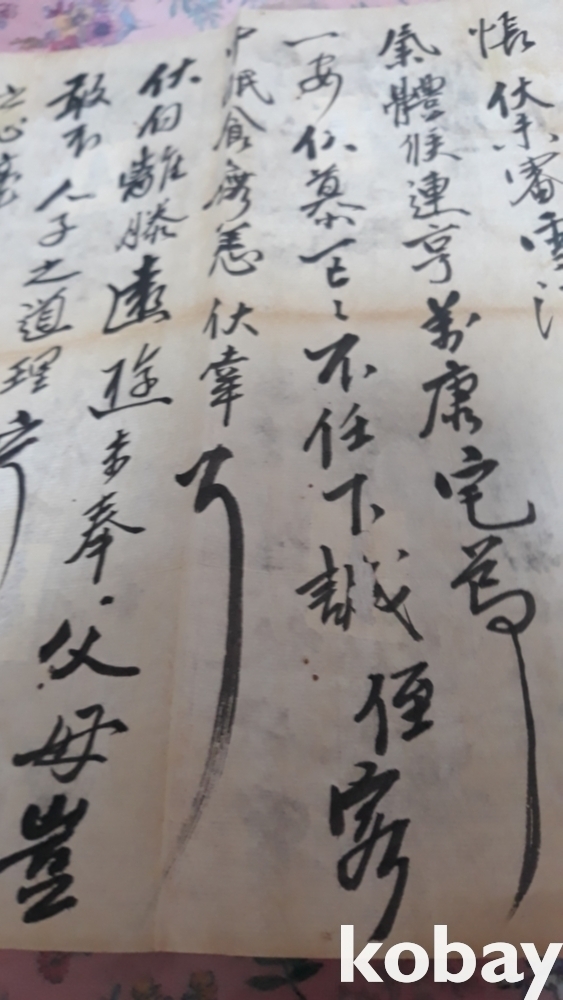 悵伏未審雪
氣體候連亨萬康宅篤
一安伏慕區〻不任下誠侄客
中眠食無恙伏幸耳
伏白離膝遠遊未奉父母豈
敢不人子之道理
之心
kobay